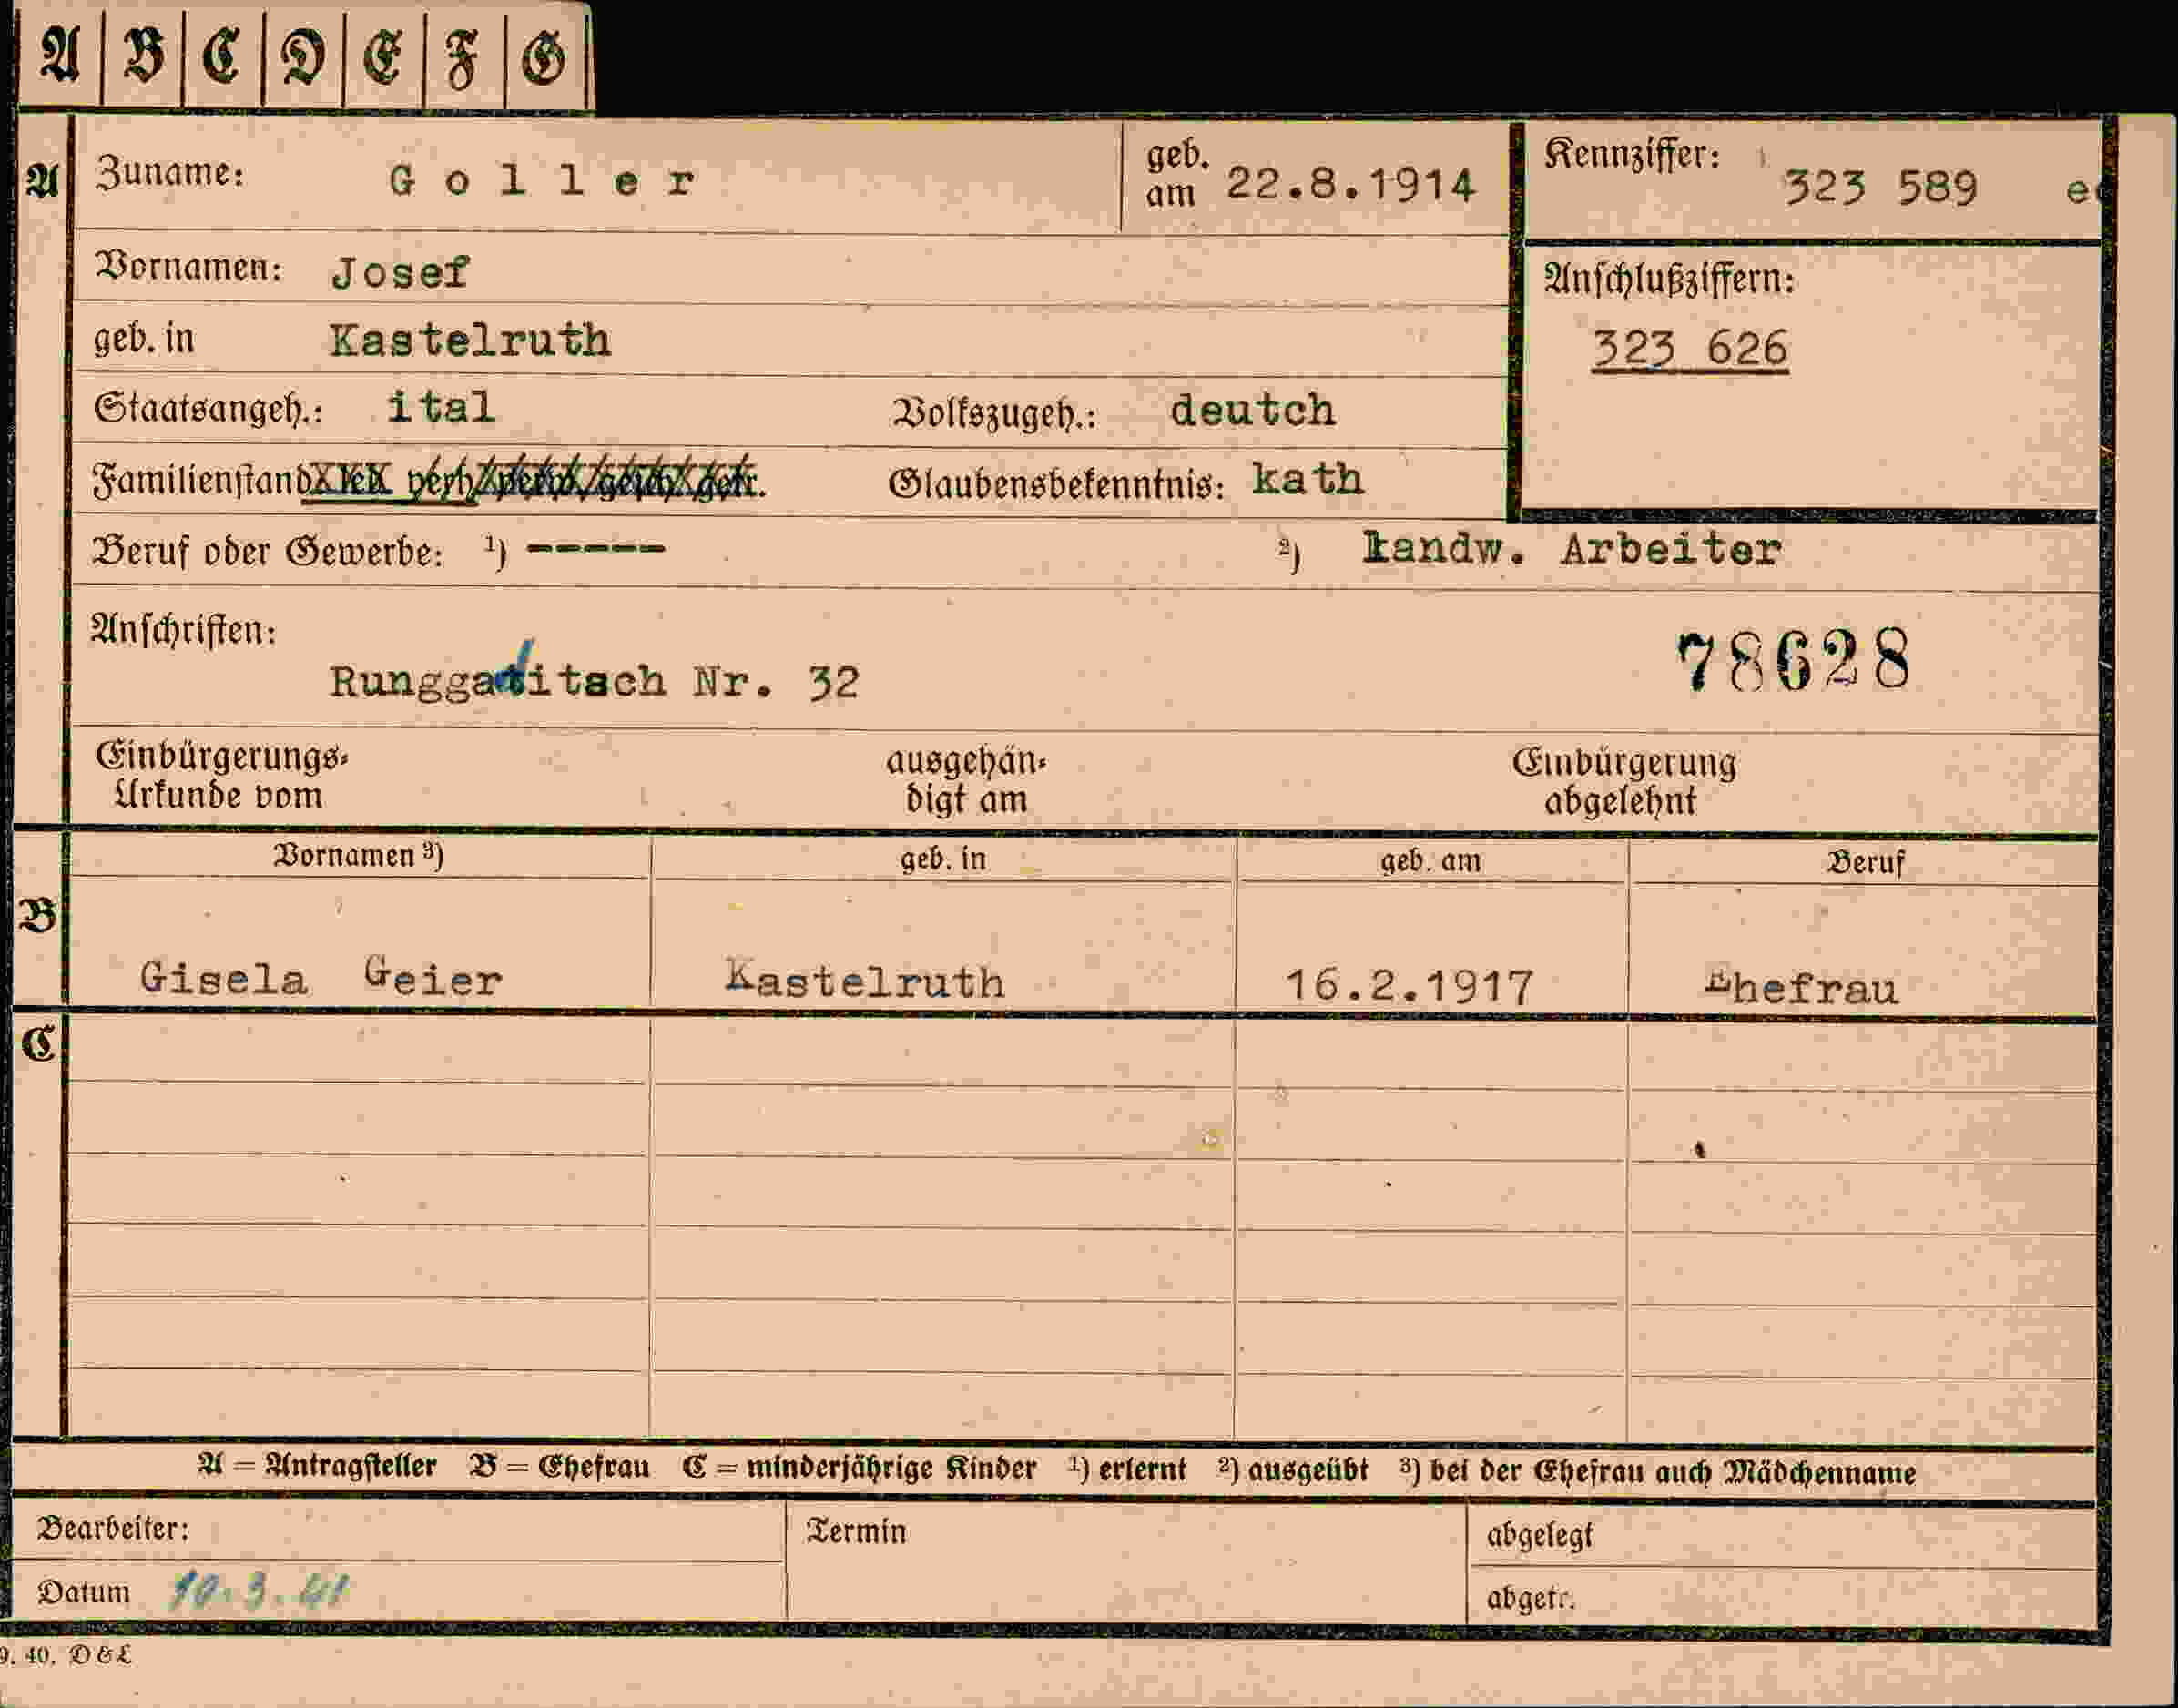 A B C D E F G
A Zuname: Goller geb. am 22.8.1914 Kennziffer: 323 589
Vornamen: Josef
Anschlußziffern:
geb. in Kastelruth 323 626
Staatsangeh.: ital Volkszugeh.: deutch
Familienstand verh. gesch. getr. Glaubensbekenntnis: kath
Beruf oder Gewerbe: ¹) ----- ²) Landw. Arbeiter
Anschriften: 78628
Runggaditsch Nr. 32
Einbürgerungs- ausgehän- Einbürgerung
Urkunde vom digt am abgelehnt
Vornamen ³) geb. in geb. am Beruf
B
Gisela Geier Kastelruth 16.2.1917 Ehefrau
C
A = Antragsteller B = Ehefrau C = minderjährige Kinder ¹) erlernt ²) ausgeübt ³) bei der Ehefrau auch Mädchenname
Bearbeiter: Termin abgelegt
Datum 10.3.41 abgetr.
9. 40. D & L